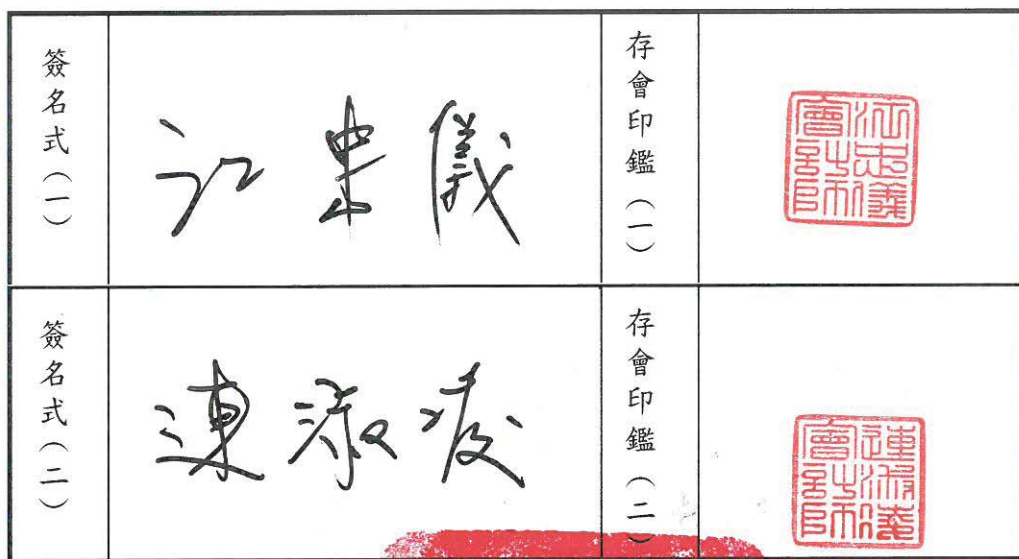 簽名式(一)
江忠儀
存會印鑑(一)
江忠儀會計師
簽名式(二)
連淑凌
存會印鑑(二)
連淑凌會計師